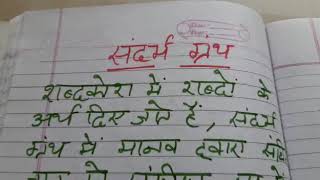 संदर्भ ग्रंथ
शब्दकोश में शब्दों के
अर्थ दिए जाते हैं, संदर्भ
ग्रंथ में मानव द्वारा